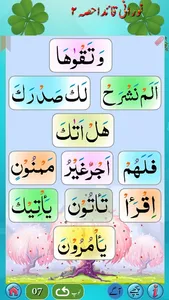 نورانی قائدہ حصہ ۲
وَتَقْوٰهَا
اَلَمْ نَشْرَحْ لَكَ صَدْرَكَ
هَلْ اَتٰكَ
فَلَهُمْ اَجْرٌ غَيْرُ مَمْنُوْنٍ
اِقْرَاْ تَاْتُوْنَ يَاْتِيْكَ
يَاْمُرُوْنَ
07